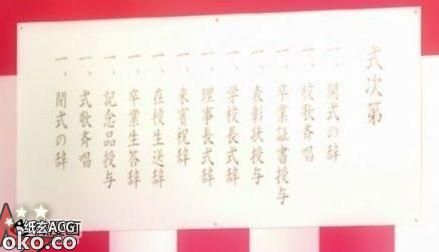 式次第
一、開式の辞
一、校歌斉唱
一、卒業証書授与
一、表彰状授与
一、学校長式辞
一、理事長式辞
一、来賓祝辞
一、在校生送辞
一、卒業生答辞
一、記念品授与
一、式歌斉唱
一、閉式の辞
纸玄ACGT
oko.co